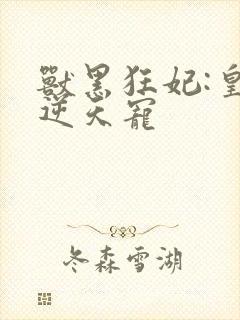 獸黑狂妃:皇
逆天寵
冬森雪湖